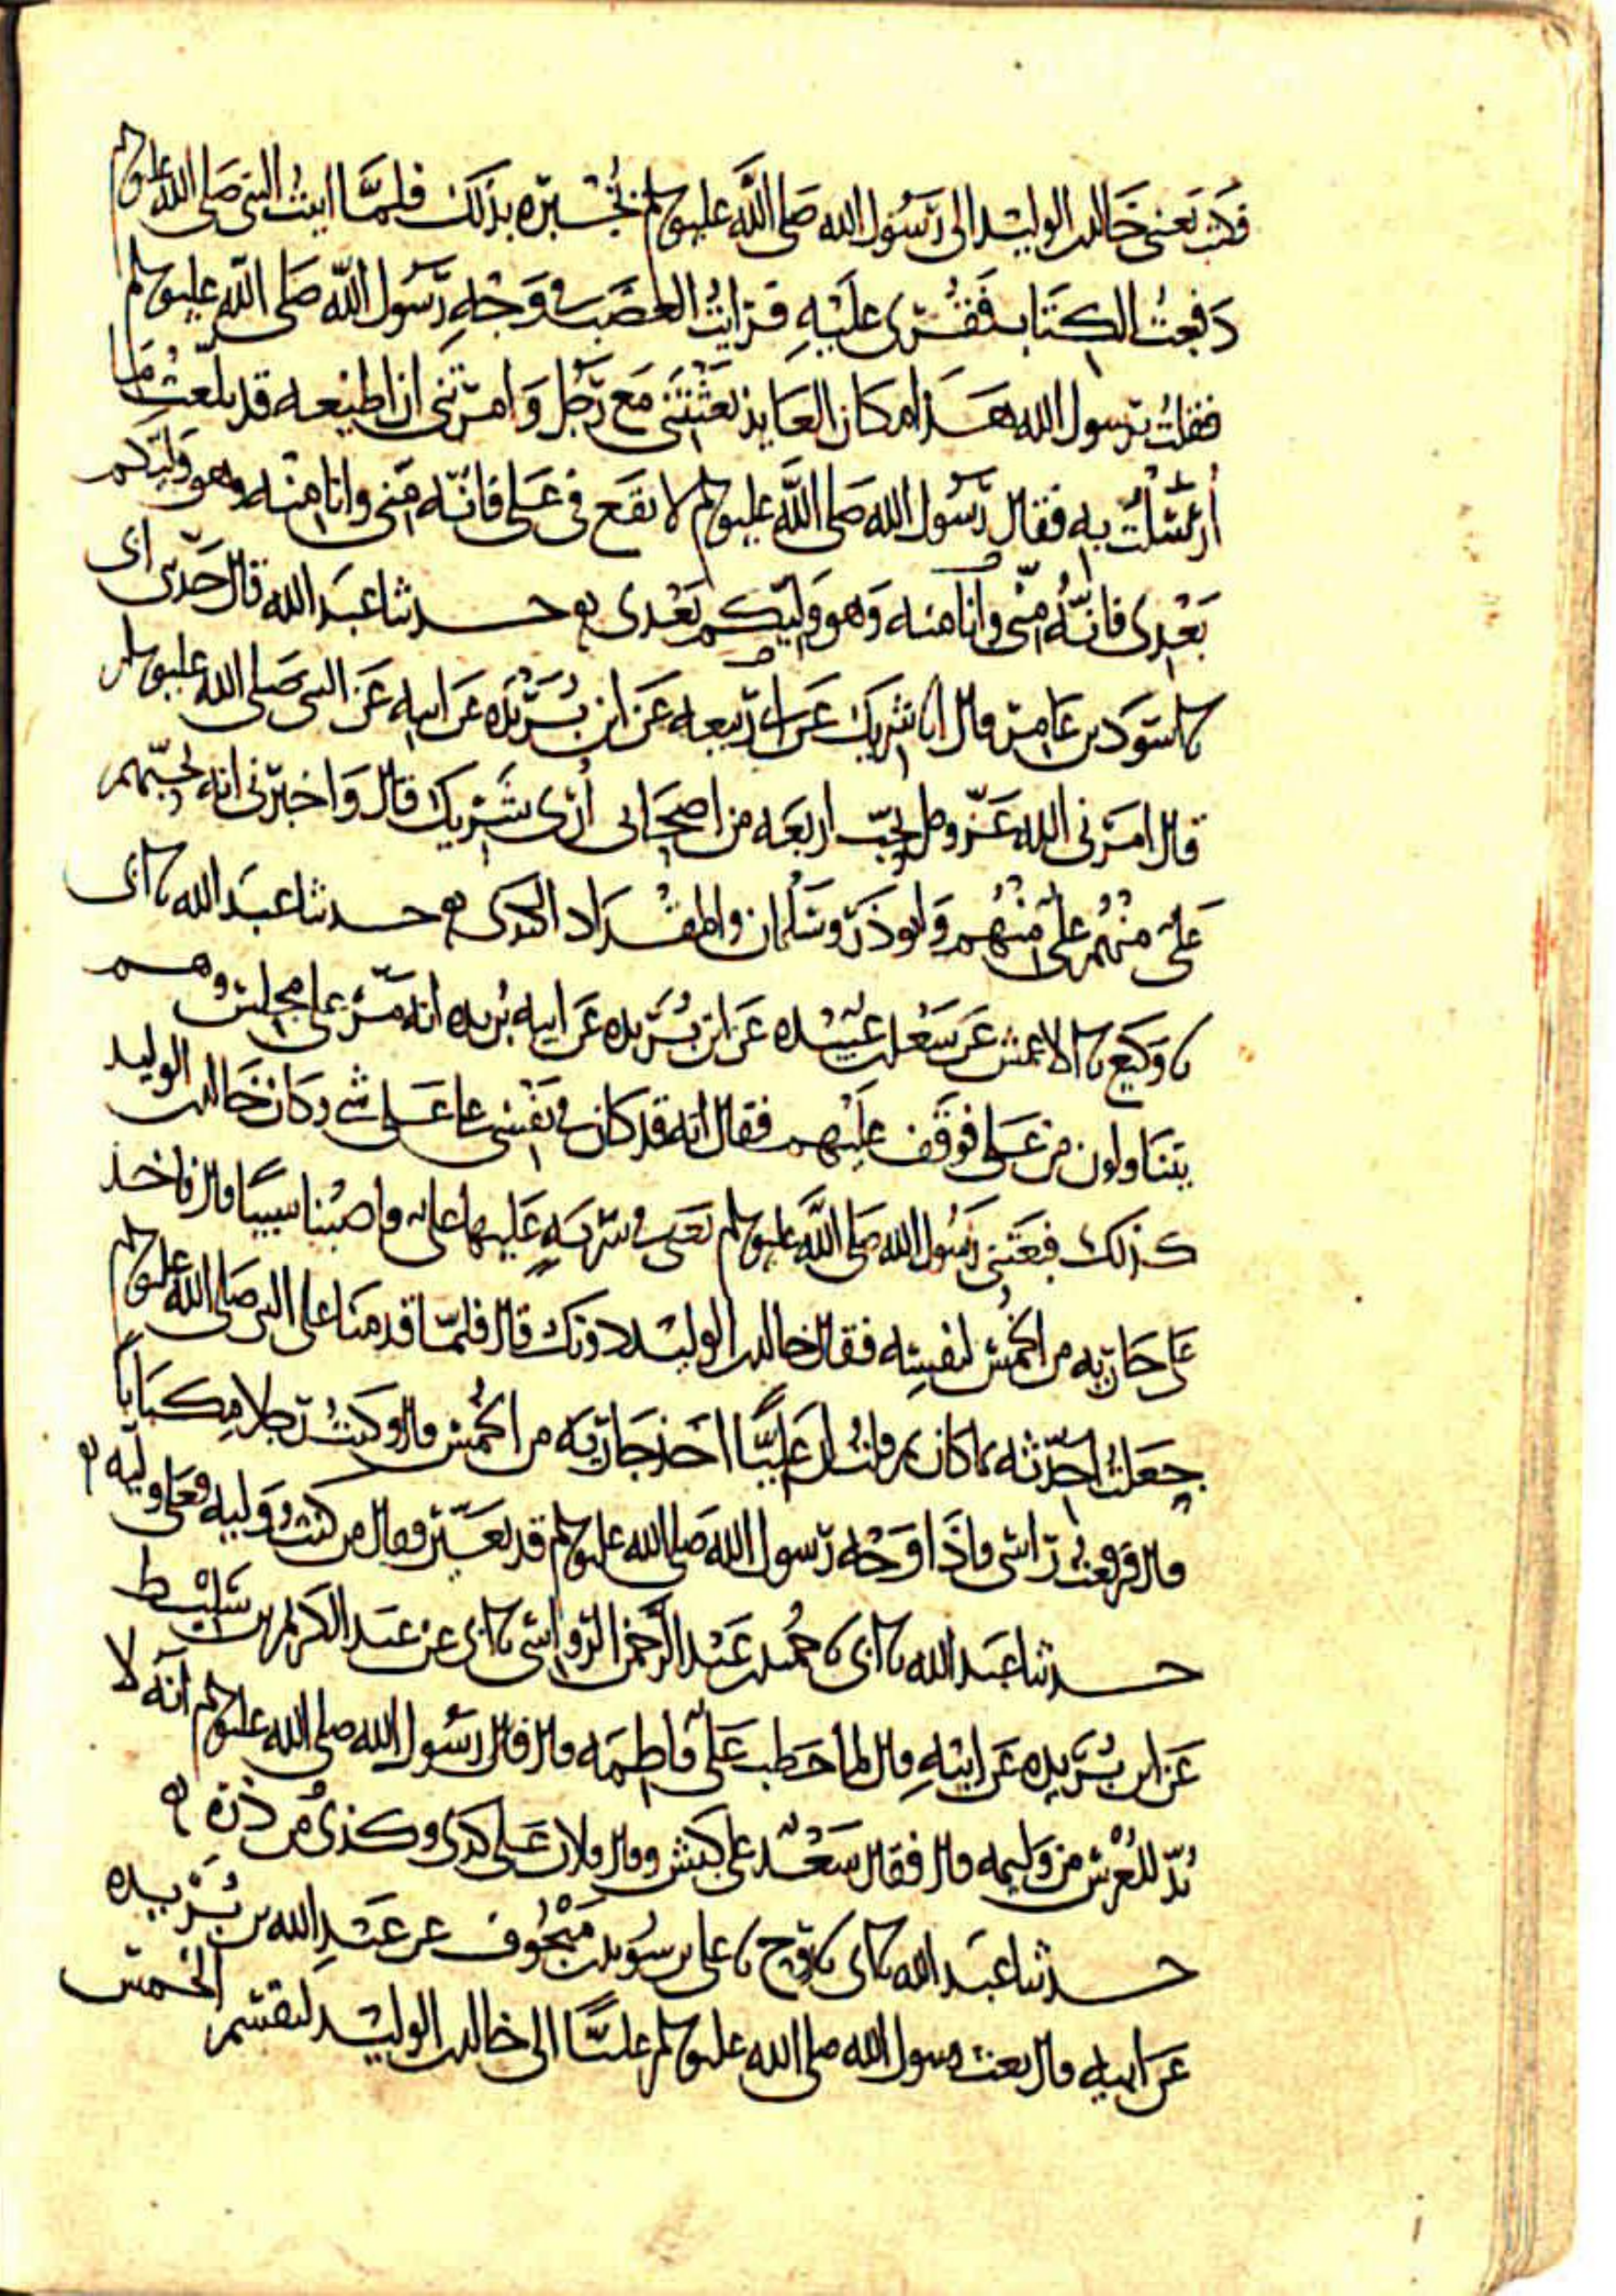 فكتب يعني خالد بن الوليد الى رسول الله صلى الله عليه وسلم يخبره بذلك فلما اتيت النبي صلى الله عليه وسلم
دفعت الكتاب فقرى عليه فرايت الغضب في وجه رسول الله صلى الله عليه وسلم
فقلت يرسول الله هذا مكان العايذ بعثتني مع رجل وامرتني ان اطيعه قد بلغت ما
ارسلت به فقال رسول الله صلى الله عليه وسلم لا تقع في علي فانه مني وانا منه وهو وليكم
بعدي فانه مني وانا منه وهو وليكم بعدي حدثنا عبد الله قال حدثني ابي
نا اسود بن عامر قال انا شريك عن ابي ربيعه عن ابن بريده عن ابيه عن النبي صلى الله عليه وسلم
قال امرني الله عز وجل بحب اربعه من اصحابي ارى شريك قال واخبرني انه يحبهم
علي منهم علي منهم وابو ذر وسلمان والمقداد الكندي حدثنا عبد الله نا ابي
نا وكيع نا الاعمش عن سعد بن عبيده عن ابن بريده عن ابيه بريده انه مر على مجلس وهم
يتناولون من علي فوقف عليهم فقال انه قد كان في نفسي على علي شي وكان خالد بن الوليد
كذلك فبعثني رسول الله صلى الله عليه وسلم يعني في سرية عليها علي واصبنا سبيا قال فاخذ
علي جاريه من الخمس لنفسه فقال خالد بن الوليد دونك قال فلما قدمنا على النبي صلى الله عليه وسلم
جعلت احدثه بما كان ثم قلت ان عليا اخذ جاريه من الخمس قال وكنت رجلا مكبابا
قال فرفعت راسي فاذا وجه رسول الله صلى الله عليه وسلم قد تغير وقال من كنت وليه فعلي وليه
حدثنا عبد الله نا ابي نا حميد بن عبد الرحمن الرواسي نا ابي عن عبد الكريم بن سليط
عن ابن بريده عن ابيه قال لما خطب علي فاطمه قال قال رسول الله صلى الله عليه وسلم انه لا
بد للعرس من وليمه قال فقال سعد علي كبش وقال فلان علي كذى وكذى من ذره
حدثنا عبد الله نا ابي نا روح نا علي بن سويد بن منجوف عن عبد الله بن بريده
عن ابيه قال بعث رسول الله صلى الله عليه وسلم عليا الى خالد بن الوليد ليقسم الخمس